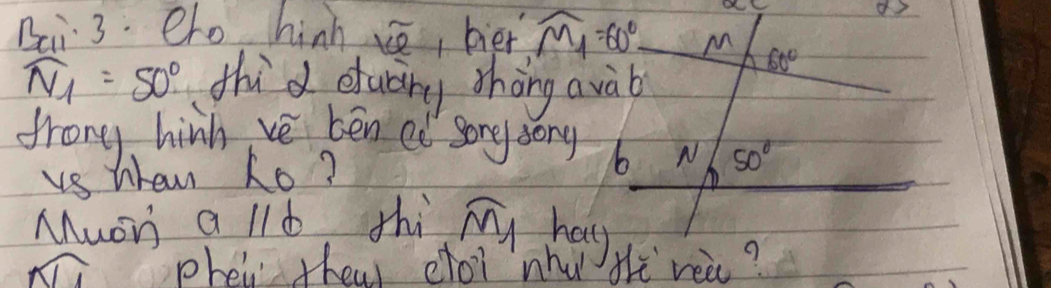 Bài 3. Cho hình vẽ, biết M̂₁ = 60°
N̂₁ = 50° thì 2 đường thẳng a và b
trong hình vẽ bên có song song
vs nhau ko?
Muốn a // b thì M̂₁ hay
N̂₁ phải thay đổi như thế nào?
M 60°
b N 50°